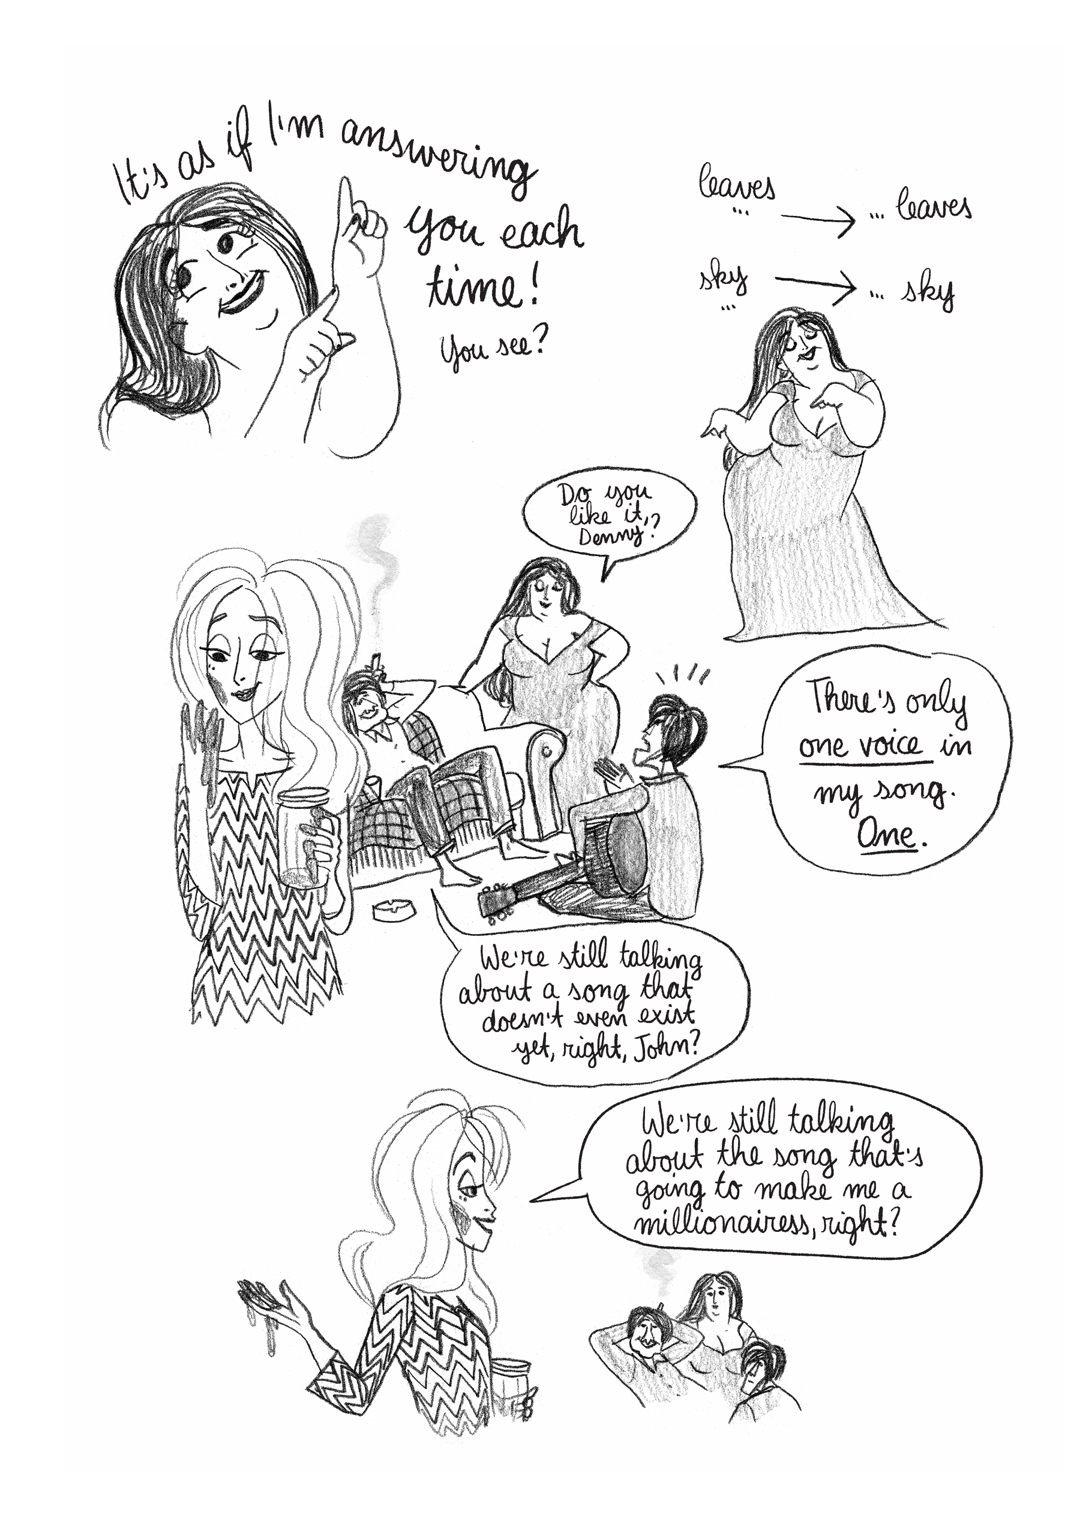 It's as if I'm answering
you each
time!
You see?
leaves
... → ... leaves
sky
... → ... sky
Do you
like it,
Denny?
There's only
one voice in
my song.
One.
We're still talking
about a song that
doesn't even exist
yet, right, John?
We're still talking
about the song that's
going to make me a
millionairess, right?